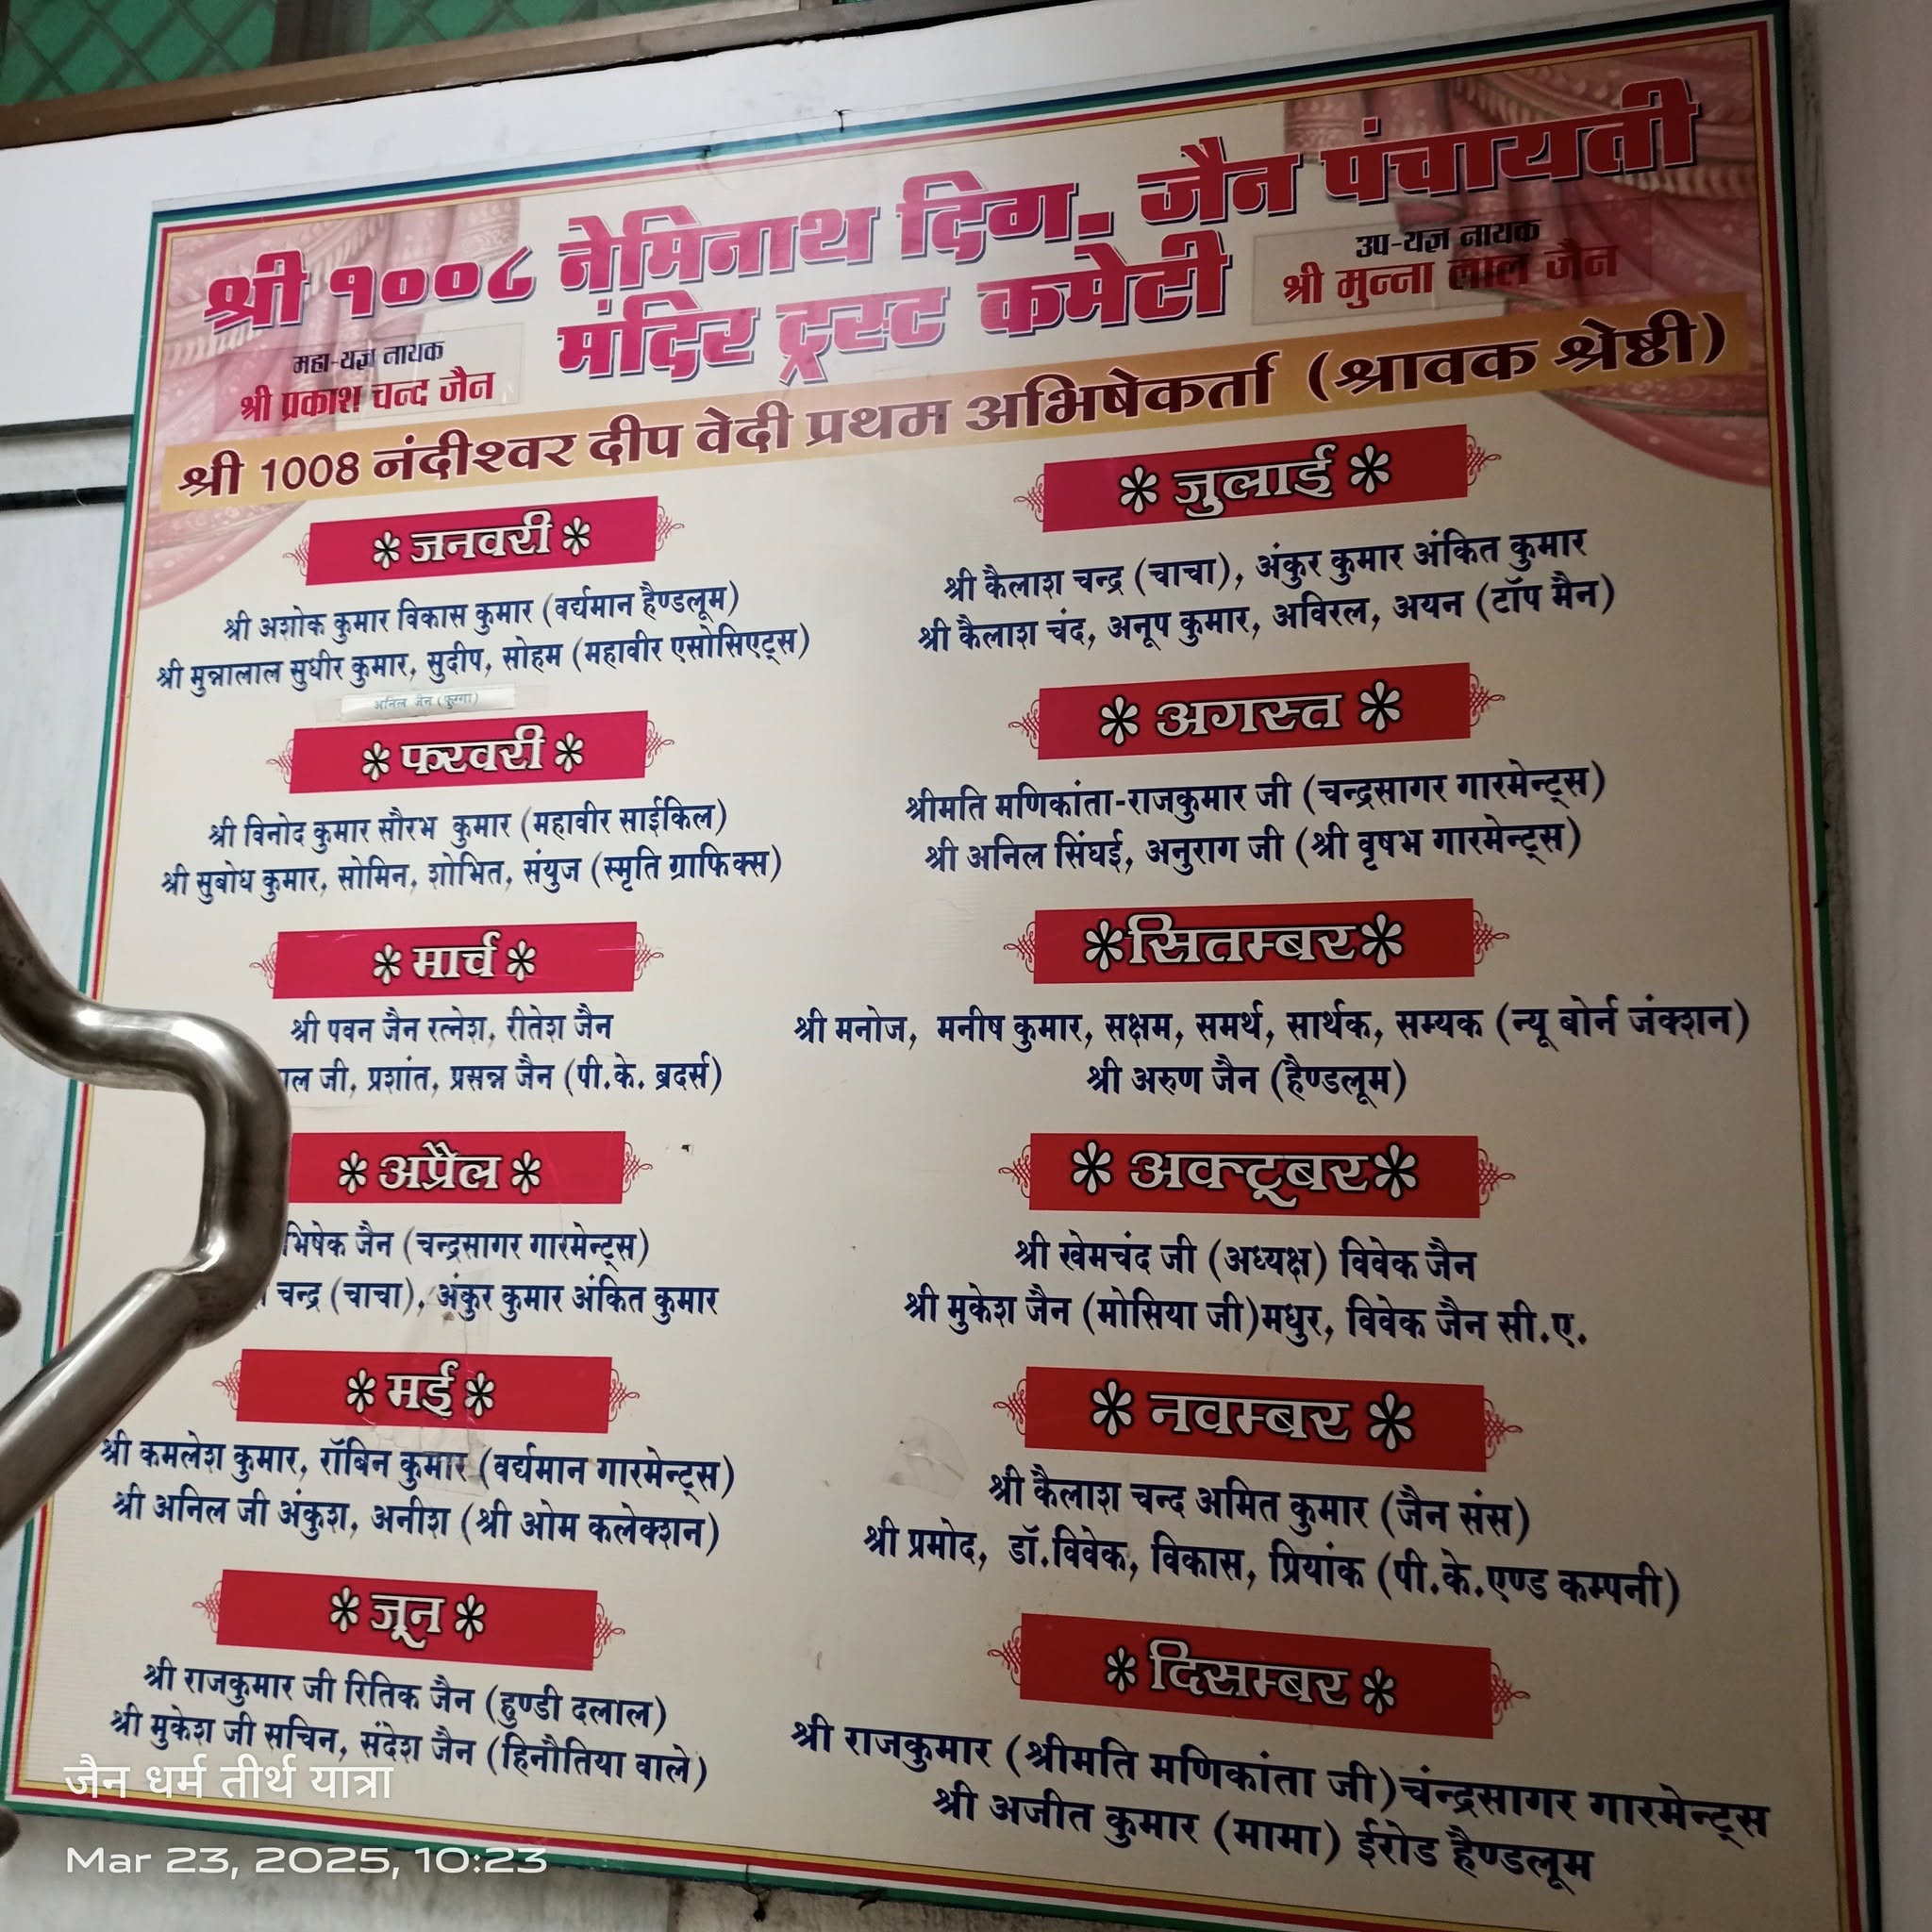 श्री १००८ नेमिनाथ दिग. जैन पंचायती
मंदिर ट्रस्ट कमेटी
महा-यज्ञ नायक
श्री प्रकाश चन्द जैन
उप-यज्ञ नायक
श्री मुन्ना लाल जैन
श्री 1008 नंदीश्वर दीप वेदी प्रथम अभिषेकर्ता (श्रावक श्रेष्ठी)
* जनवरी *
श्री अशोक कुमार विकास कुमार (वर्द्यमान हैण्डलूम)
श्री मुन्नालाल सुधीर कुमार, सुदीप, सोहम (महावीर एसोसिएट्स)
अनिल जैन
* फरवरी *
श्री विनोद कुमार सौरभ कुमार (महावीर साईकिल)
श्री सुबोध कुमार, सोमिन, शोभित, संयुज (स्मृति ग्राफिक्स)
* मार्च *
श्री पवन जैन रत्नेश, रीतेश जैन
जी, प्रशांत, प्रसन्न जैन (पी.के. ब्रदर्स)
* अप्रैल *
जैन (चन्द्रसागर गारमेन्ट्स)
चन्द्र (चाचा), अंकुर कुमार अंकित कुमार
* मई *
श्री कमलेश कुमार, रॉबिन कुमार (वर्द्यमान गारमेन्ट्स)
श्री अनिल जी अंकुश, अनीश (श्री ओम कलेक्शन)
* जून *
श्री राजकुमार जी रितिक जैन (हुण्डी दलाल)
श्री मुकेश जी सचिन, संदेश जैन (हिनौतिया वाले)
* जुलाई *
श्री कैलाश चन्द्र (चाचा), अंकुर कुमार अंकित कुमार
श्री कैलाश चंद, अनूप कुमार, अविरल, अयन (टॉप मैन)
* अगस्त *
श्रीमति मणिकांता-राजकुमार जी (चन्द्रसागर गारमेन्ट्स)
श्री अनिल सिंघई, अनुराग जी (श्री वृषभ गारमेन्ट्स)
*सितम्बर*
श्री मनोज, मनीष कुमार, सक्षम, समर्थ, सार्थक, सम्यक (न्यू बोर्न जंक्शन)
श्री अरुण जैन (हैण्डलूम)
* अक्टूबर*
श्री खेमचंद जी (अध्यक्ष) विवेक जैन
श्री मुकेश जैन (मोसिया जी)मधुर, विवेक जैन सी.ए.
* नवम्बर *
श्री कैलाश चन्द अमित कुमार (जैन संस)
श्री प्रमोद, डॉ.विवेक, विकास, प्रियांक (पी.के.एण्ड कम्पनी)
* दिसम्बर *
श्री राजकुमार (श्रीमति मणिकांता जी)चंन्द्रसागर गारमेन्ट्स
श्री अजीत कुमार (मामा) ईरोड हैण्डलूम
जैन धर्म तीर्थ यात्रा
Mar 23, 2025, 10:23